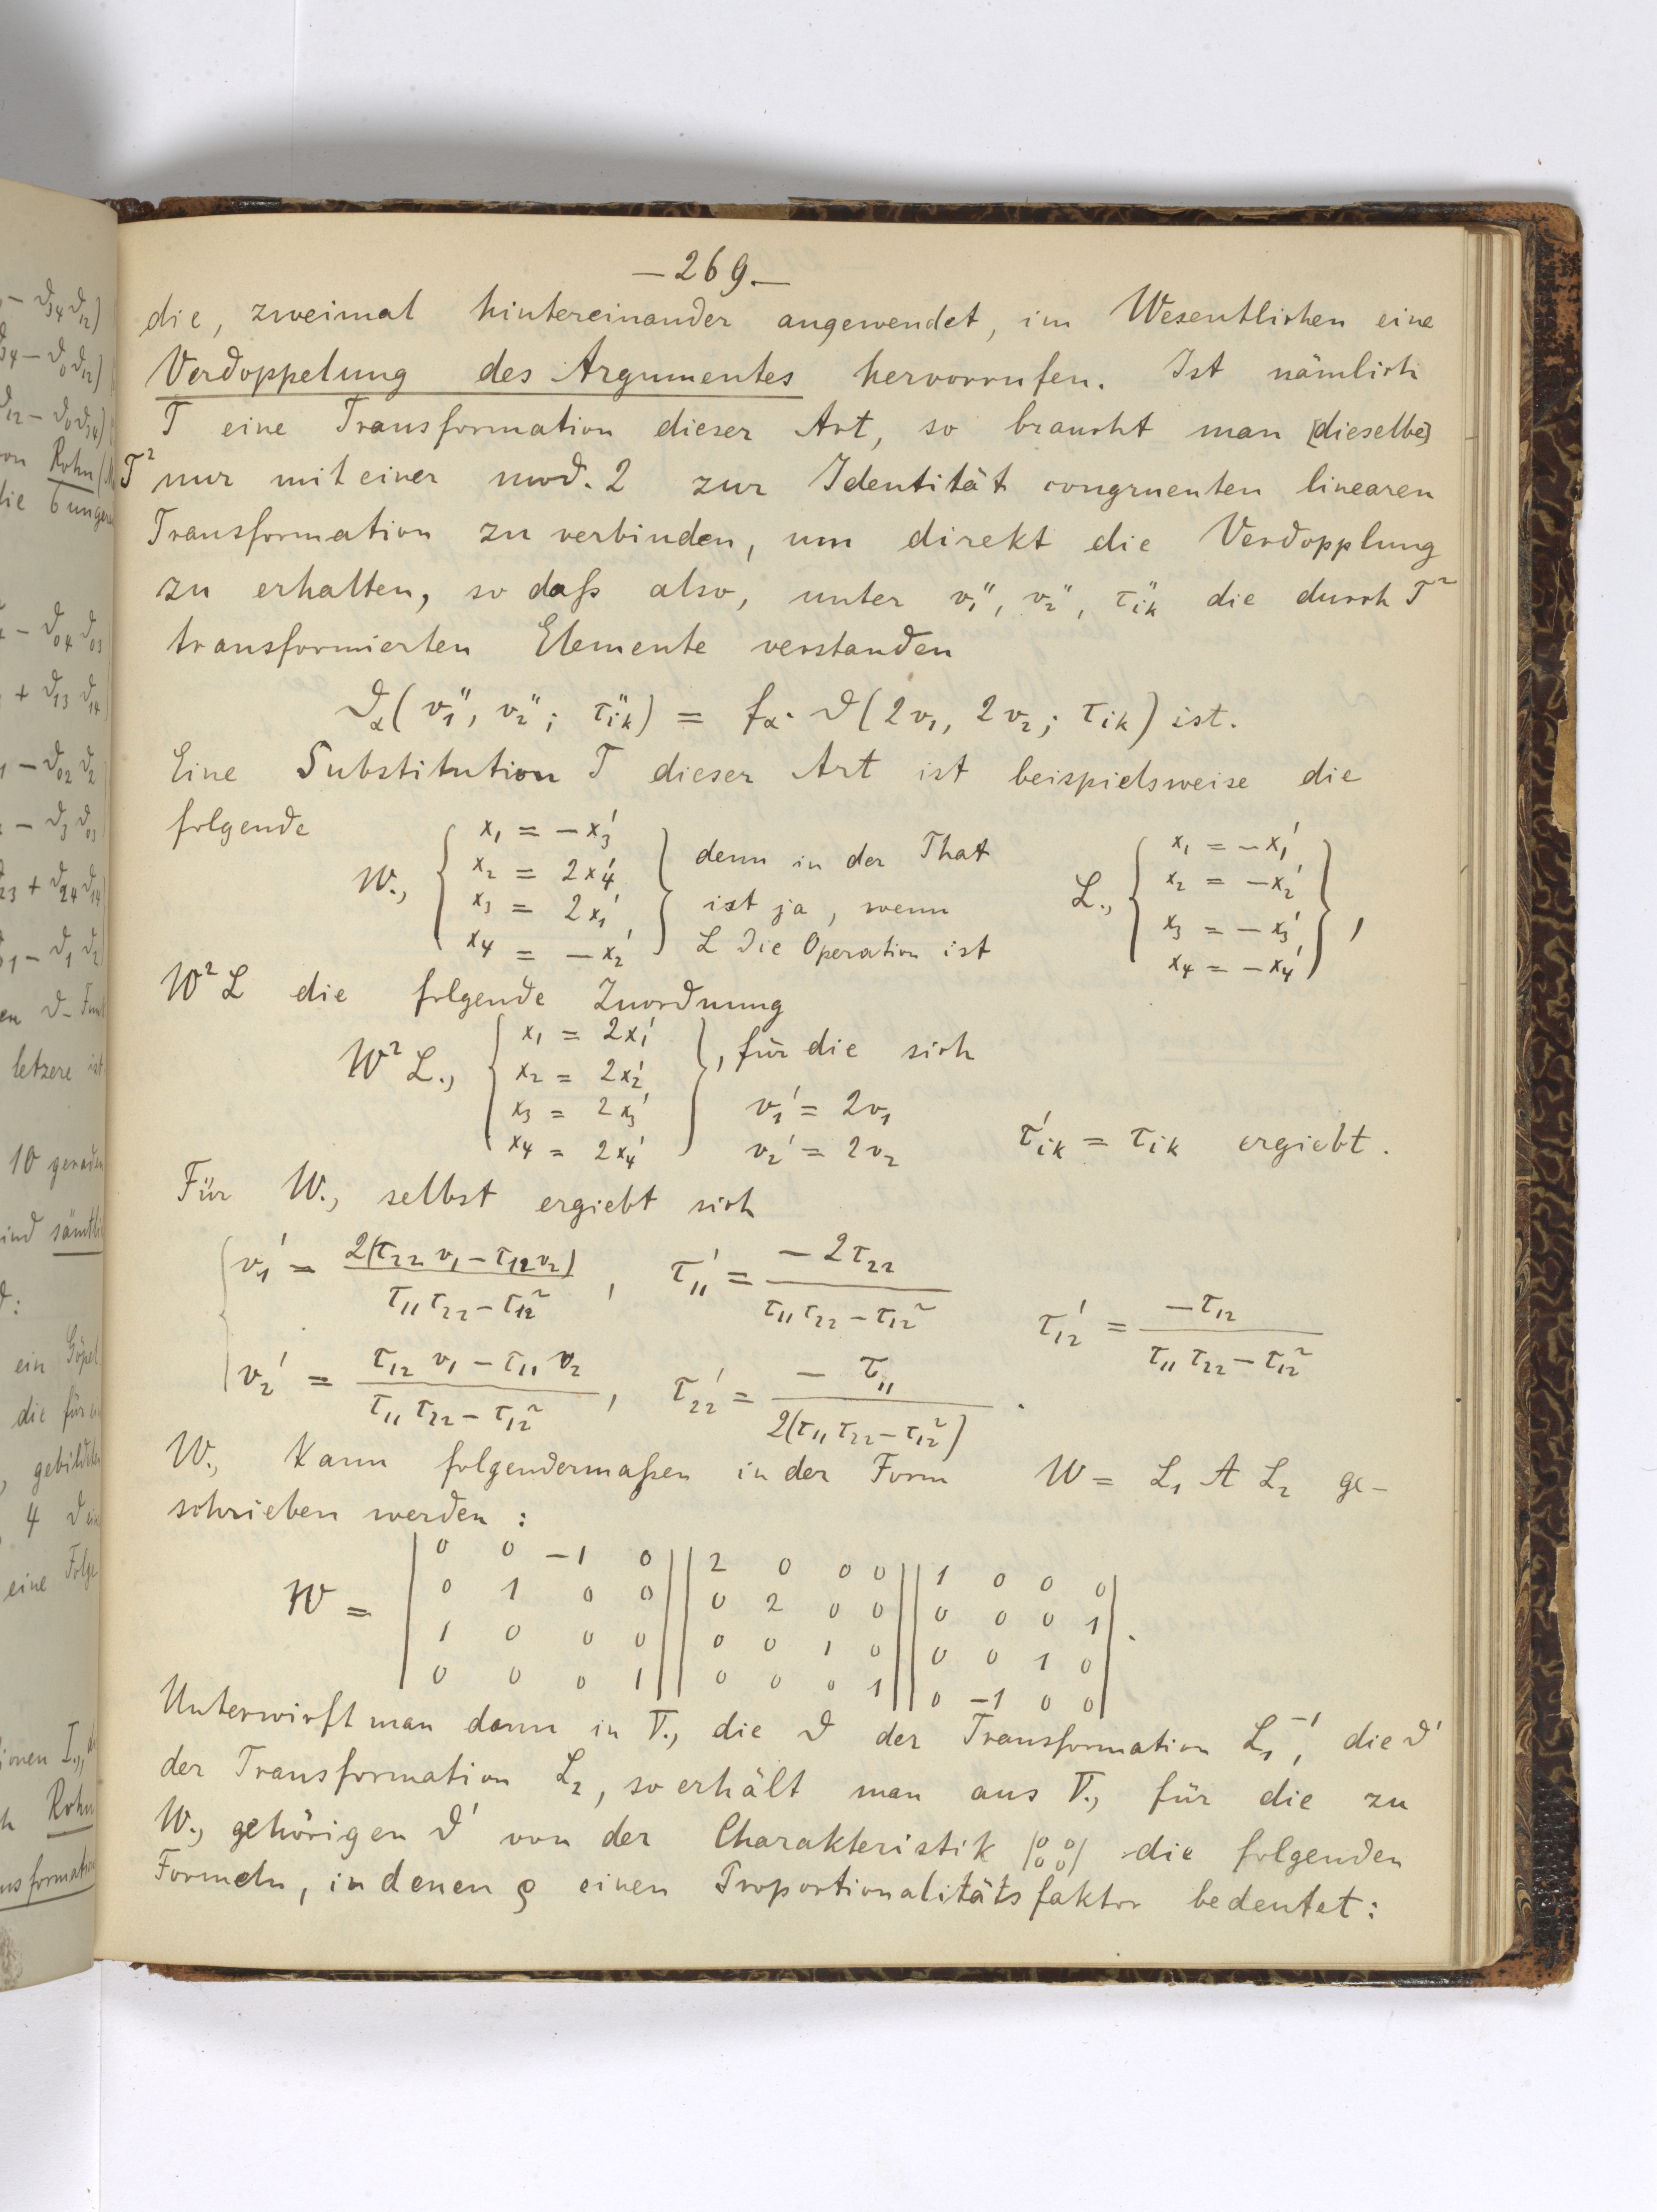 — 269 —
die, zweimal hintereinander angewendet, im Wesentlichen eine
Verdoppelung des Argumentes hervorrufen. Ist nämlich
T eine Transformation dieser Art, so braucht man [dieselbe]
T² nur mit einer mod. 2 zur Identität congruenten linearen
Transformation zu verbinden, um direkt die Verdopplung
zu erhalten, so daß also, unter v₁'', v₂'', τ''ᵢₖ die durch T²
transformierten Elemente verstanden
ϑ_α(v₁'', v₂''; τ''ᵢₖ) = f_α · ϑ(2v₁, 2v₂; τᵢₖ) ist.
Eine Substitution T dieser Art ist beispielsweise die
folgende
W., { x₁ = −x₃'
x₂ = 2x₄'
x₃ = 2x₁'
x₄ = −x₂' } denn in der That
ist ja, wenn
L die Operation ist
L., { x₁ = −x₁'
x₂ = −x₂'
x₃ = −x₃'
x₄ = −x₄' },
W²L die folgende Zuordnung
W²L., { x₁ = 2x₁'
x₂ = 2x₂'
x₃ = 2x₃'
x₄ = 2x₄' }, für die sich
v₁' = 2v₁
v₂' = 2v₂ τ'ᵢₖ = τᵢₖ ergiebt.
Für W., selbst ergiebt sich
{ v₁' = 2(τ₂₂ v₁ − τ₁₂ v₂) / (τ₁₁ τ₂₂ − τ₁₂²), τ₁₁' = −2τ₂₂ / (τ₁₁ τ₂₂ − τ₁₂²) τ₁₂' = −τ₁₂ / (τ₁₁ τ₂₂ − τ₁₂²)
v₂' = (τ₁₂ v₁ − τ₁₁ v₂) / (τ₁₁ τ₂₂ − τ₁₂²), τ₂₂' = −τ₁₁ / 2(τ₁₁ τ₂₂ − τ₁₂²).
W., kann folgendermaßen in der Form W = L₁ A L₂ ge-
schrieben werden:
W = | 0 0 −1 0 || 2 0 0 0 || 1 0 0 0 |
| 0 1 0 0 || 0 2 0 0 || 0 0 0 1 |
| 1 0 0 0 || 0 0 1 0 || 0 0 1 0 |.
| 0 0 0 1 || 0 0 0 1 || 0 −1 0 0 |
Unterwirft man dann in V., die ϑ der Transformation L₁⁻¹, die ϑ'
der Transformation L₂, so erhält man aus V., für die zu
W., gehörigen ϑ' von der Charakteristik |0 0 / 0 0| die folgenden
Formeln, in denen ϱ einen Proportionalitätsfaktor bedeutet: